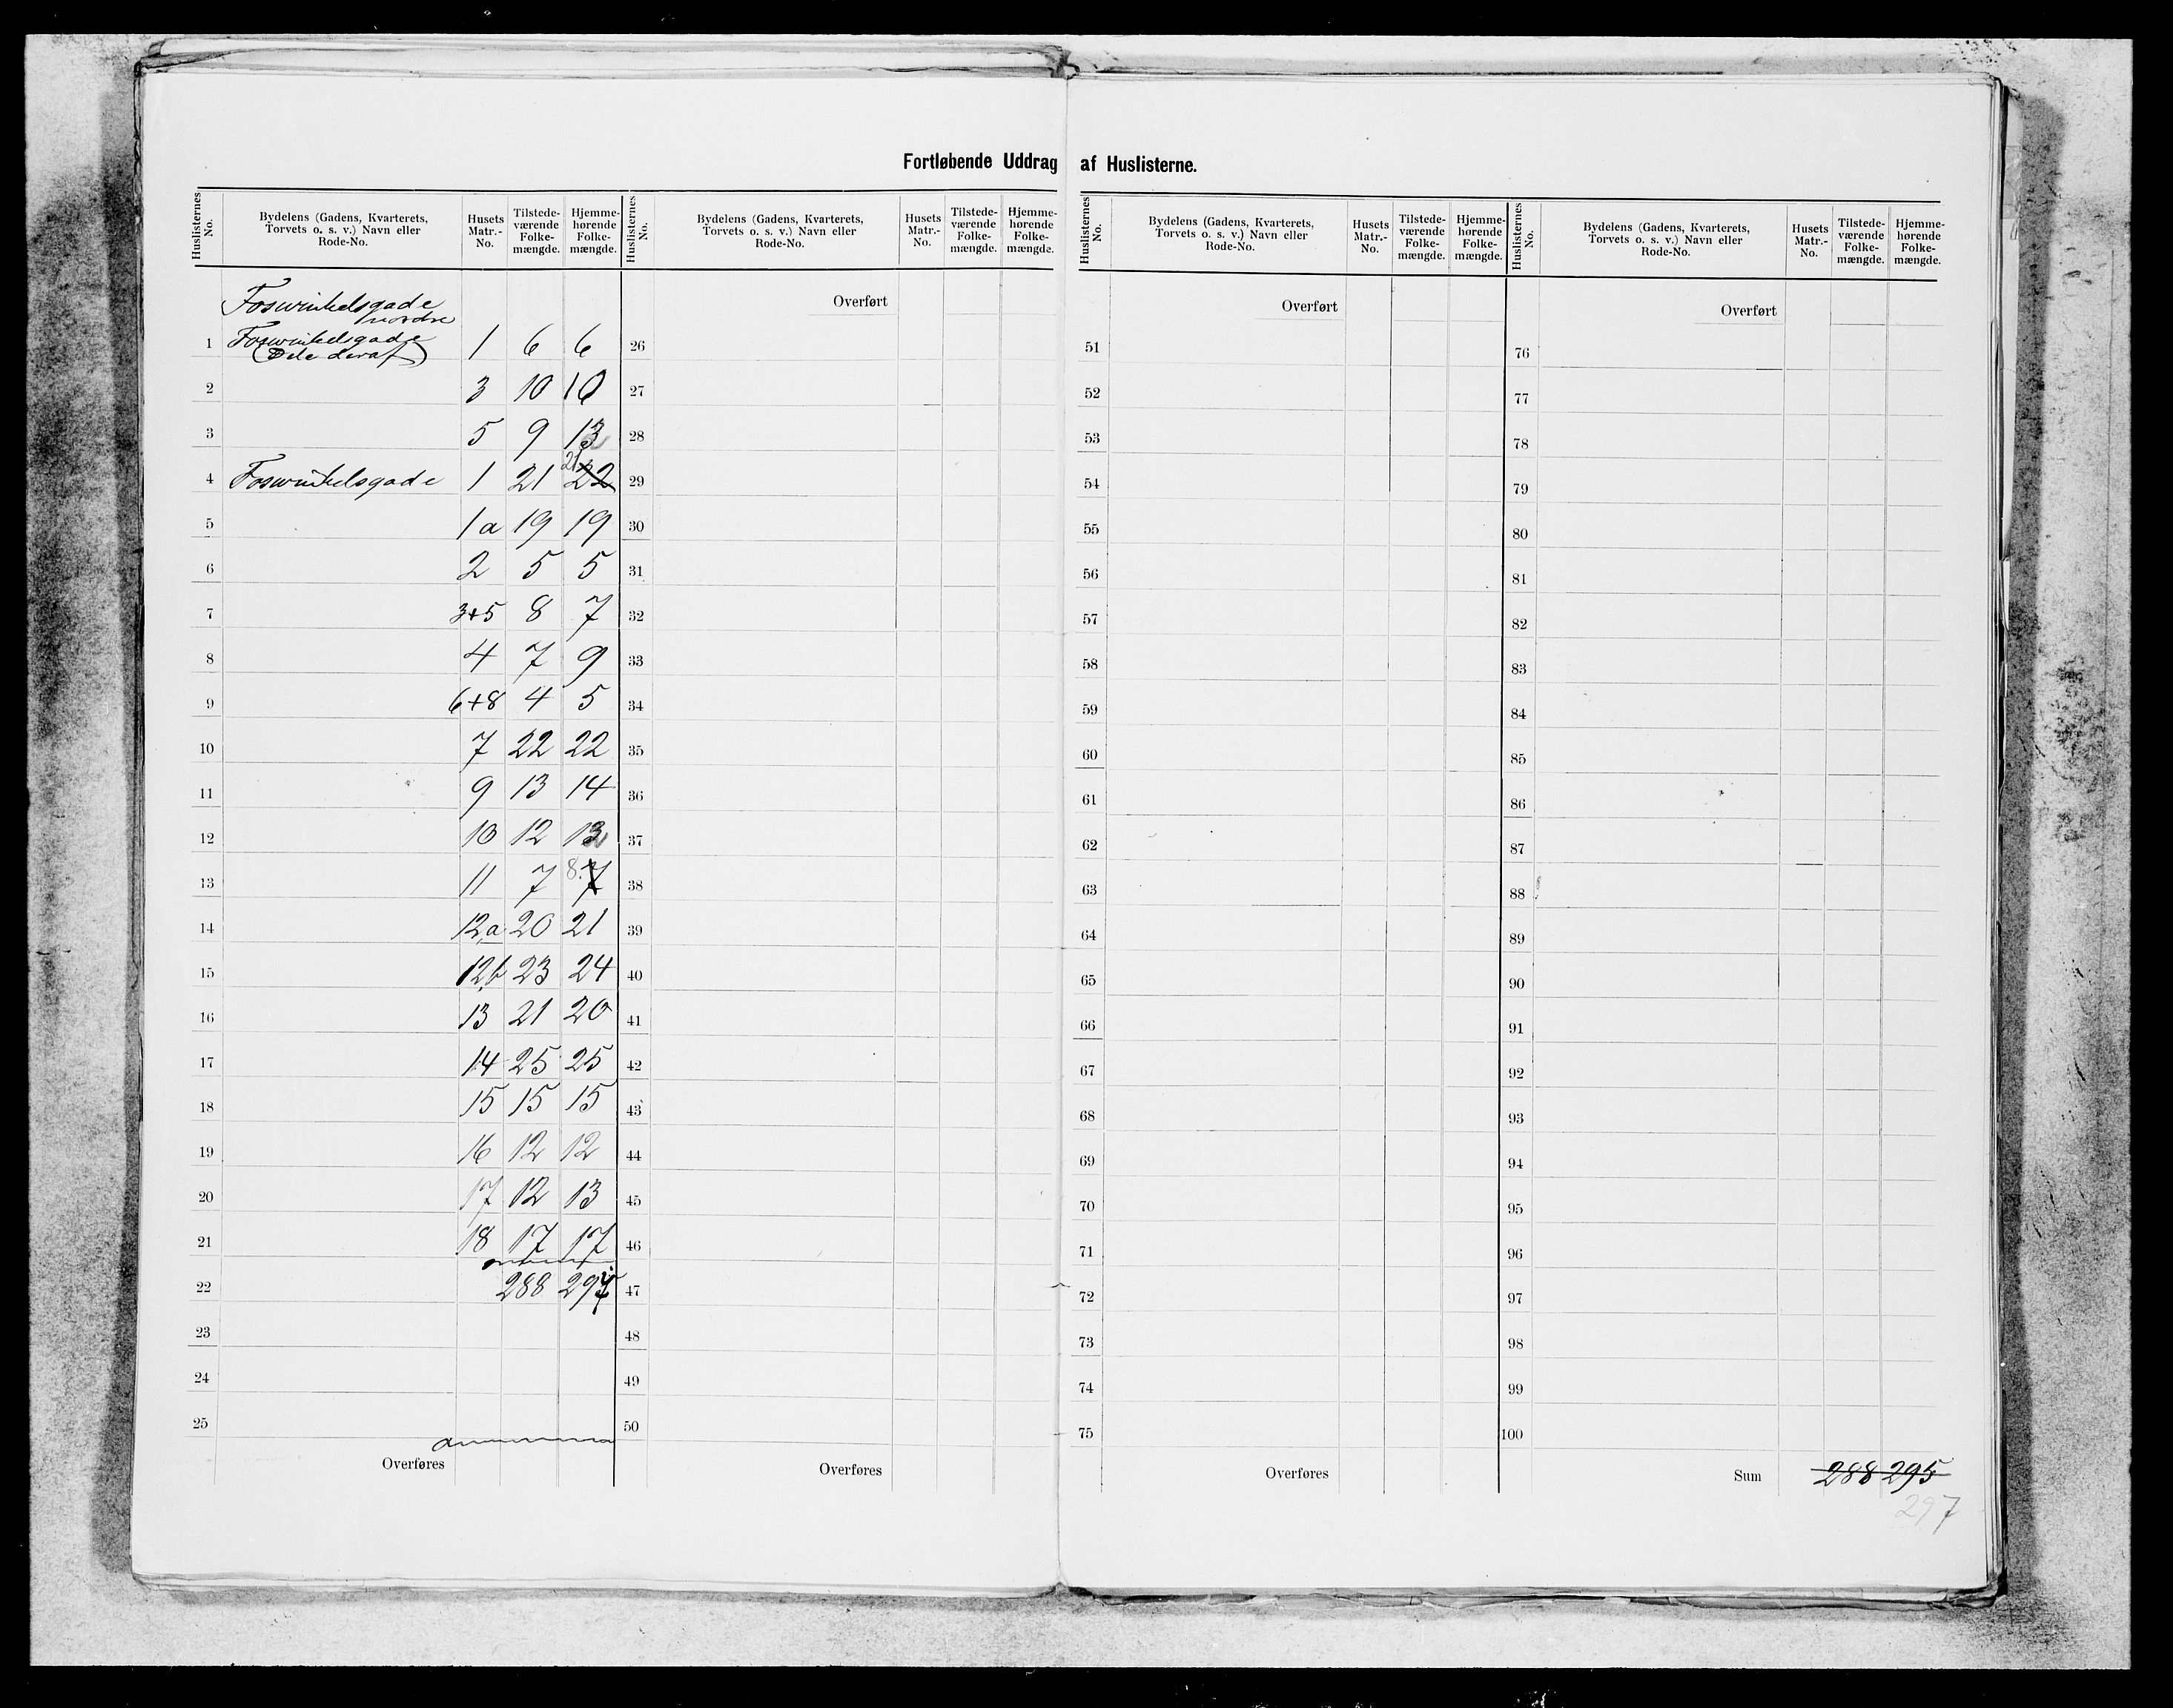 Fortløbende Uddrag af Huslisterne.
Huslisternes No. | Bydelens (Gadens, Kvarterets, Torvets o. s. v.) Navn eller Rode-No. | Husets Matr.-No. | Tilstedeværende Folkemængde. | Hjemmehørende Folkemængde.
Foswinkelsgade
nordre
1 Foswinkelsgade 1 6 6
(Dele deraf)
2 3 10 10
3 5 9 13
4 Foswinkelsgade 1 21 21 22
5 1a 19 19
6 2 5 5
7 3+5 8 7
8 4 7 9
9 6+8 4 5
10 7 22 22
11 9 13 14
12 10 12 13
13 11 7 8. 7
14 12a 20 21
15 12b 23 24
16 13 21 20
17 14 25 25
18 15 15 15
19 16 12 12
20 17 12 13
21 18 17 17
22 288
23
24
25
Overføres
Huslisternes No. | Bydelens (Gadens, Kvarterets, Torvets o. s. v.) Navn eller Rode-No. | Husets Matr.-No. | Tilstedeværende Folkemængde. | Hjemmehørende Folkemængde.
Overført
26
27
28
29
30
31
32
33
34
35
36
37
38
39
40
41
42
43
44
45
46
47
48
49
50
Overføres
Huslisternes No. | Bydelens (Gadens, Kvarterets, Torvets o. s. v.) Navn eller Rode-No. | Husets Matr.-No. | Tilstedeværende Folkemængde. | Hjemmehørende Folkemængde.
Overført
51
52
53
54
55
56
57
58
59
60
61
62
63
64
65
66
67
68
69
70
71
72
73
74
75
Overføres
Huslisternes No. | Bydelens (Gadens, Kvarterets, Torvets o. s. v.) Navn eller Rode-No. | Husets Matr.-No. | Tilstedeværende Folkemængde. | Hjemmehørende Folkemængde.
Overført
76
77
78
79
80
81
82
83
84
85
86
87
88
89
90
91
92
93
94
95
96
97
98
99
100
Sum 288 295
297